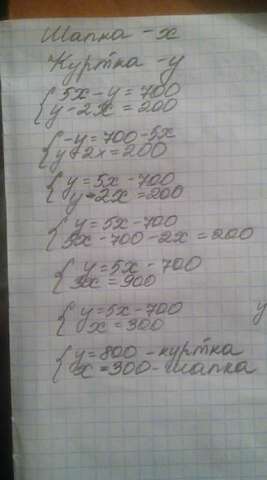 Шапка - x
Куртка - y
{ 5x - y = 700
y - 2x = 200
{ -y = 700 - 5x
y - 2x = 200
{ y = 5x - 700
y - 2x = 200
{ y = 5x - 700
5x - 700 - 2x = 200
{ y = 5x - 700
3x = 900
{ y = 5x - 700
x = 300
y
{ y = 800 - куртка
x = 300 - шапка